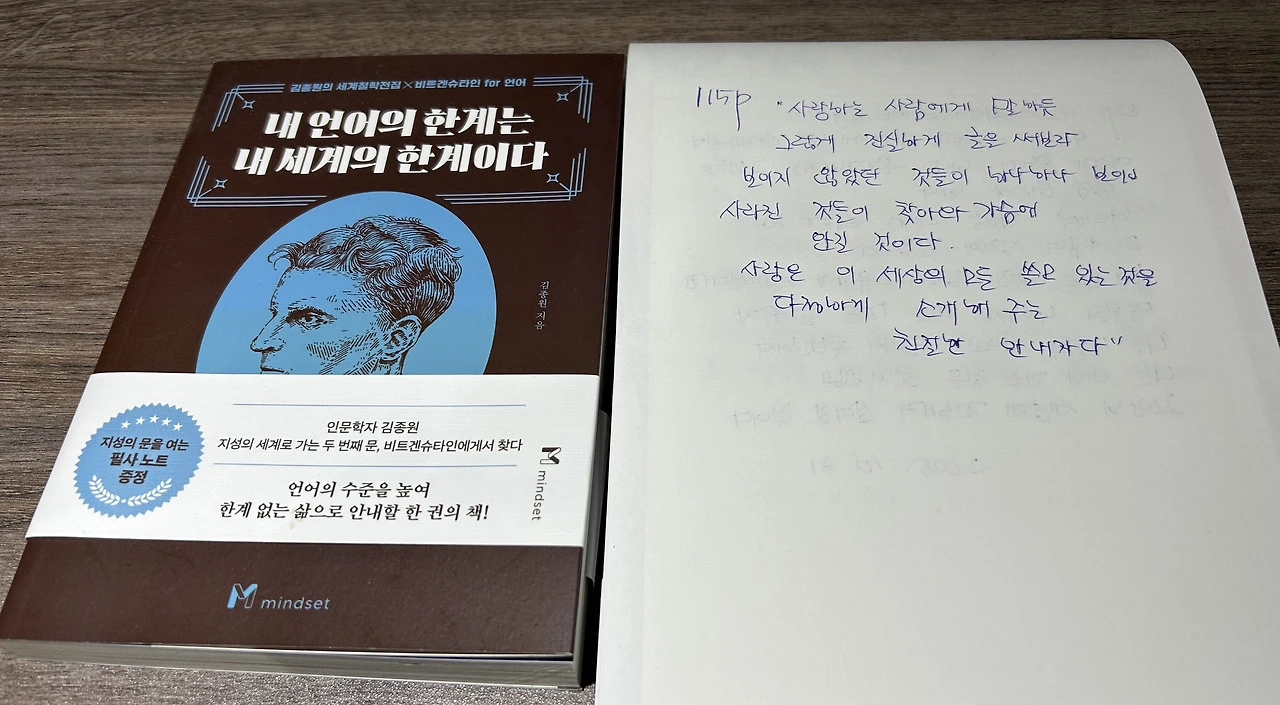 김종원의 세계철학전집×비트겐슈타인 for 언어
내 언어의 한계는
내 세계의 한계이다
김종원 지음
지성의 문을 여는
필사 노트
증정
인문학자 김종원
지성의 세계로 가는 두 번째 문, 비트겐슈타인에게서 찾다
언어의 수준을 높여
한계 없는 삶으로 안내할 한 권의 책!
mindset
mindset
115p "사랑하는 사람에게 말하듯
그렇게 진실하게 글을 써보라
보이지 않았던 것들이 하나하나 보이며
사라진 것들이 찾아와 가슴에
안길 것이다.
사랑은 이 세상의 모든 쓸모 있는 것을
다정하게 소개해 주는
친절한 안내자다"